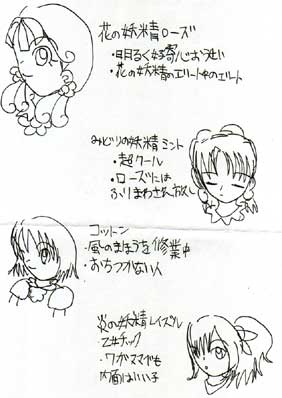 花の妖精ローズ
・明るく好奇心おうせい
・花の妖精のエリート中のエリート
みどりの妖精ミント
・超クール
・ローズには
ふりまわされ放し
コットン
・風のまほうを修業中
・おちつかない人
炎の妖精レイズル
・乙女チック
・ワガママでも
内面はいい子